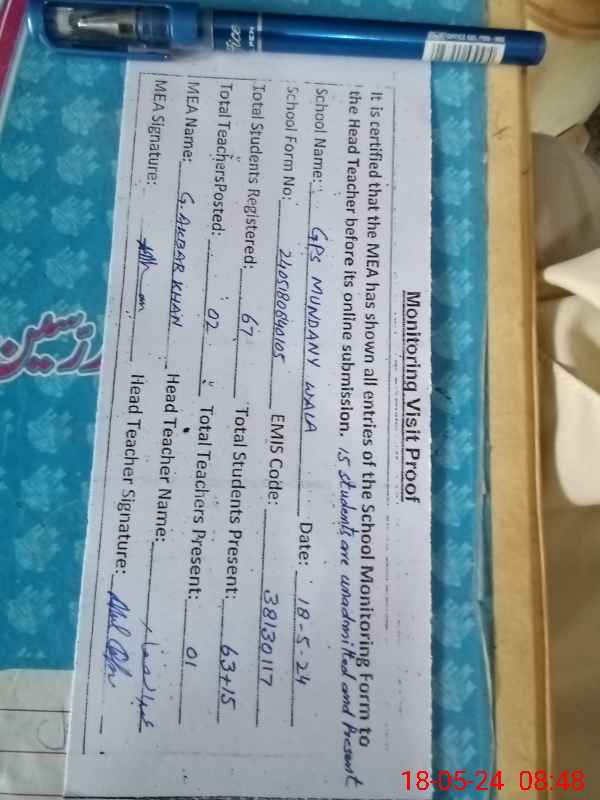 Monitoring Visit Proof
It is certified that the MEA has shown all entries of the School Monitoring Form to
the Head Teacher before its online submission. 15 students are unadmitted and Present
School Name: GPS MUNDANY WALA Date: 18-5-24
School Form No: 2405180840105 EMIS Code: 38130117
Total Students Registered: 67 Total Students Present: 63+15
Total TeachersPosted: 02 Total Teachers Present: 01
MEA Name: G. AKBAR KHAN Head Teacher Name:
MEA Signature: Head Teacher Signature:
18-05-24 08:48